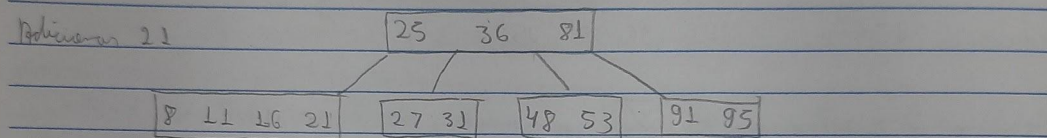 Adicionar 21
25 36 81
8 11 16 21 27 31 48 53 91 95